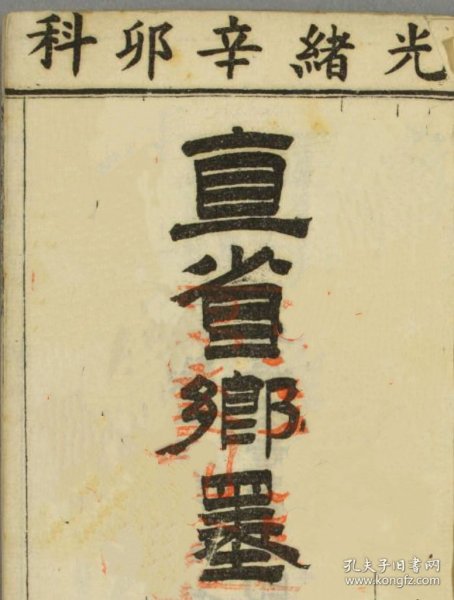 光緒辛卯科
直省鄉墨
孔夫子旧书网
www.kongfz.com